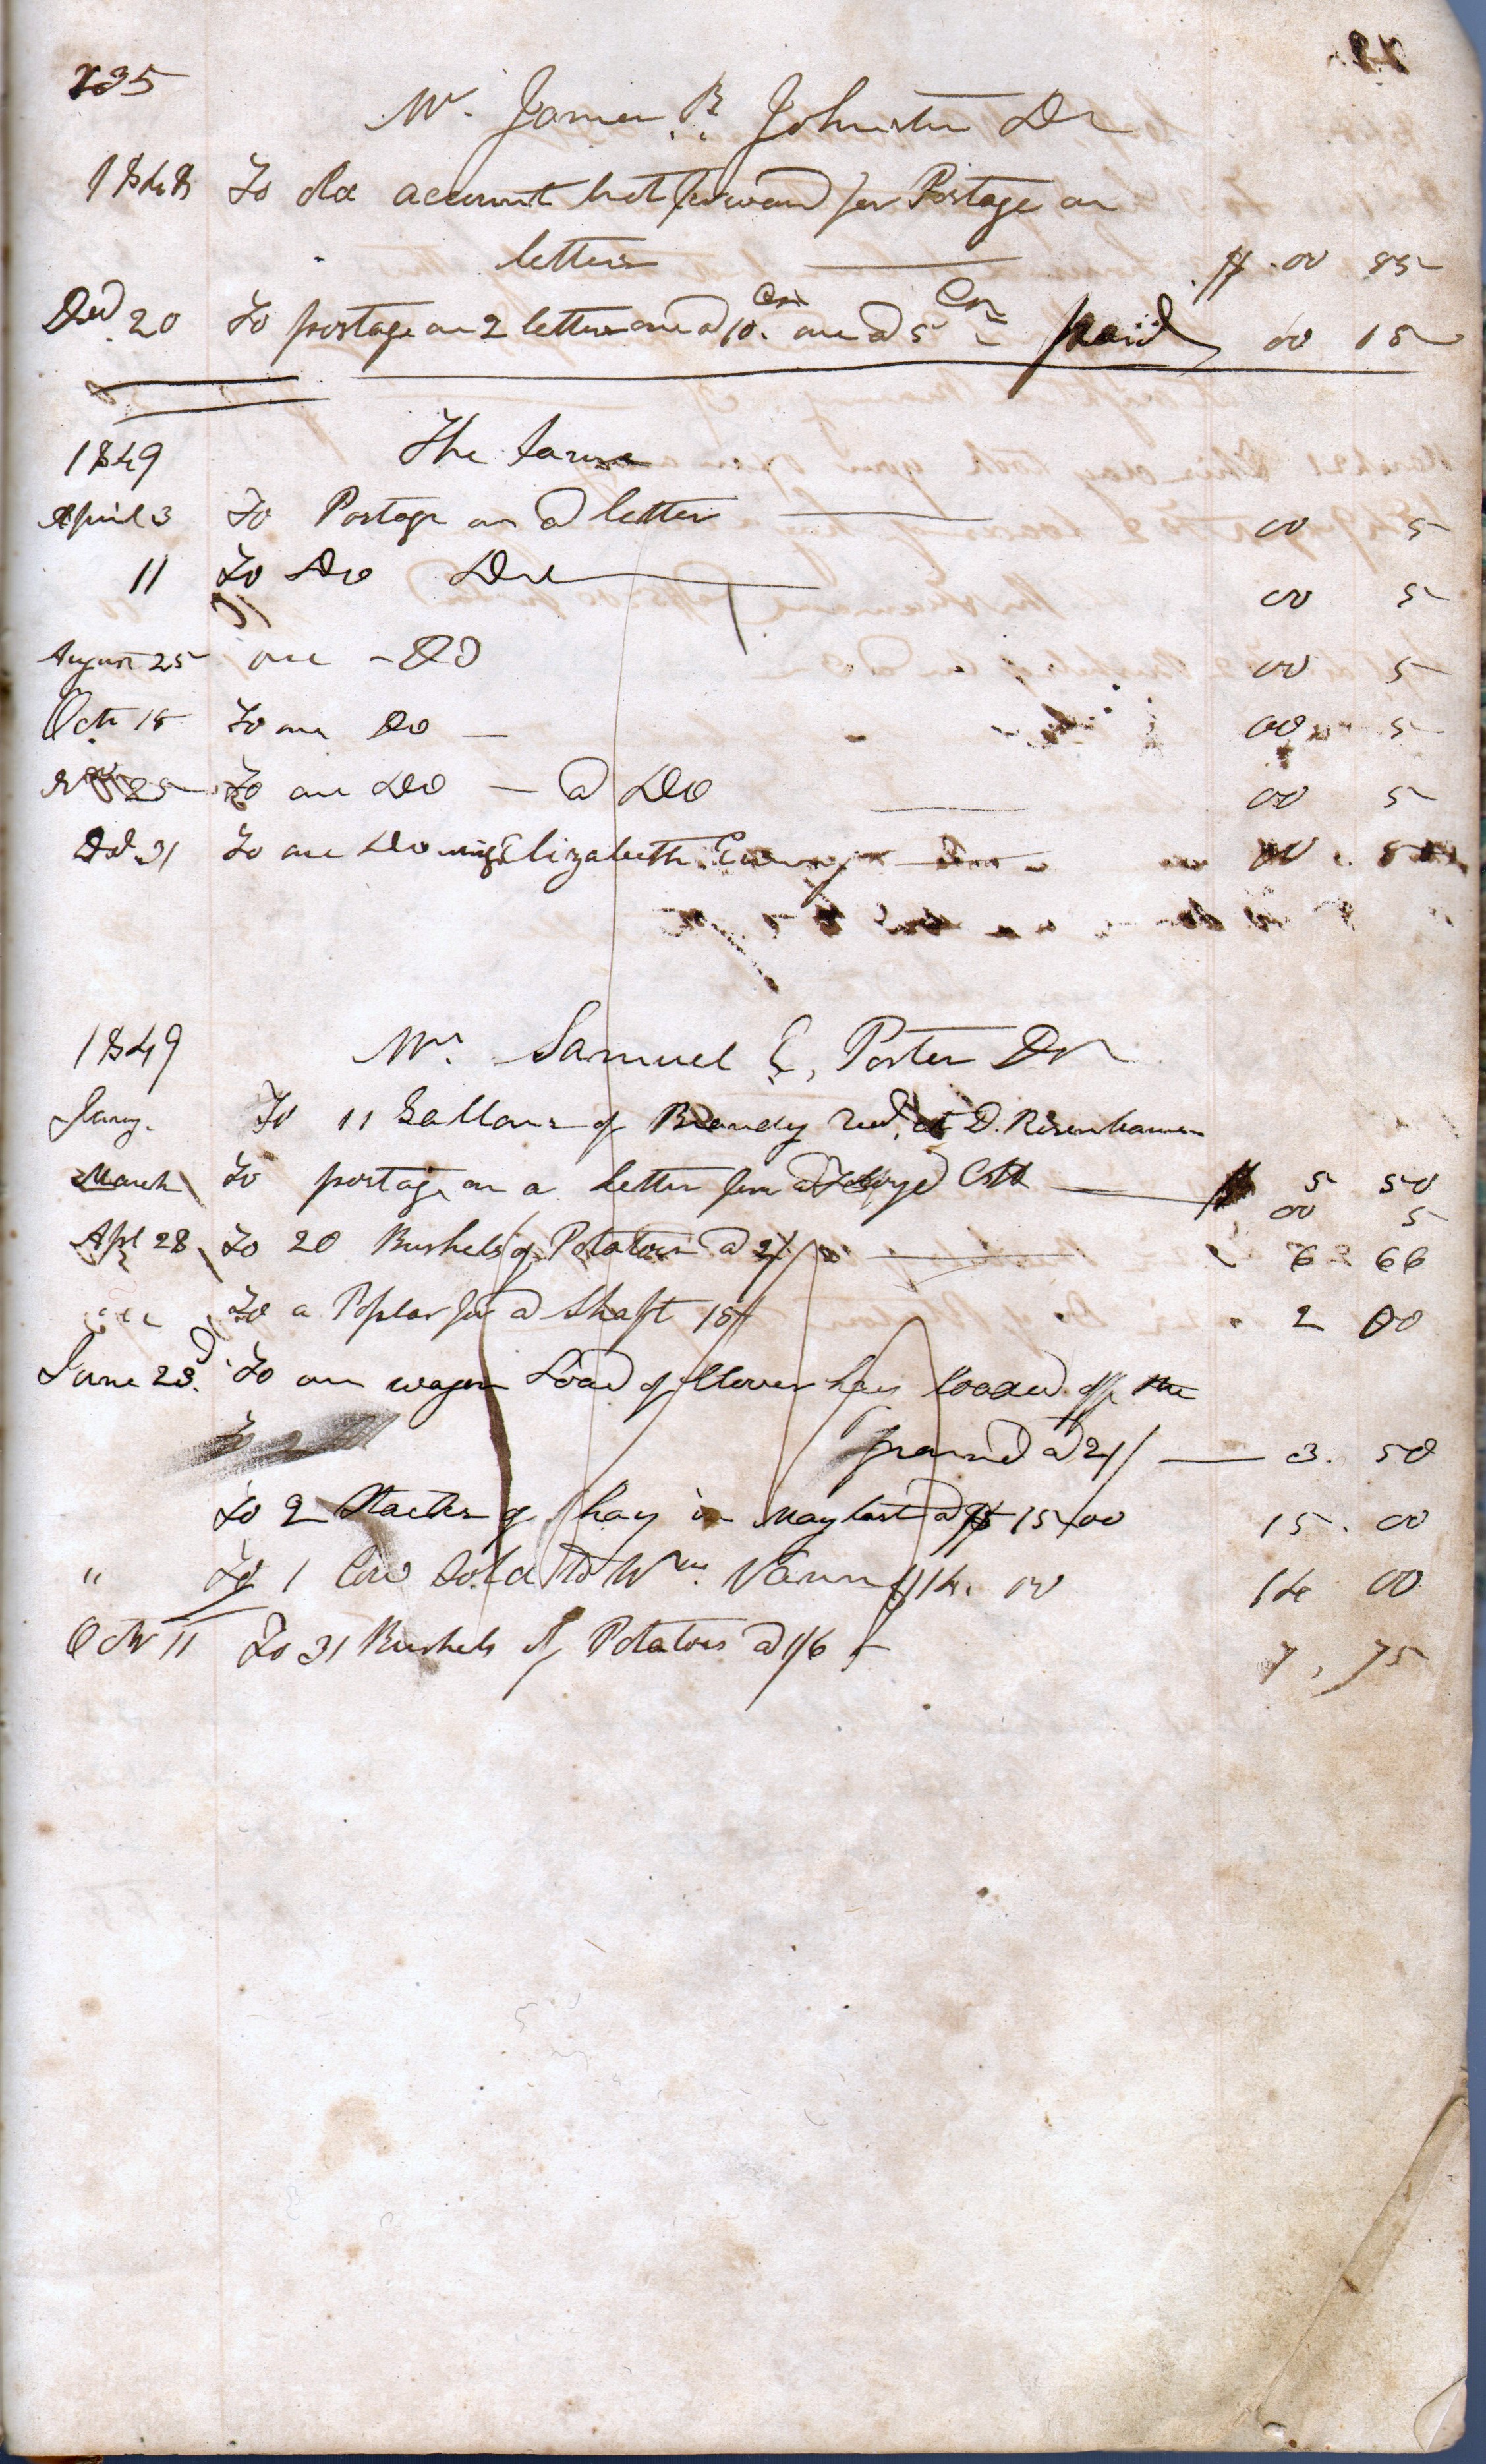 235
Mr. James B. Johnston Dr
1848 To old account brot forward for Postage on
letters $ .00 85
Decd 20 To postage on 2 letters one a 10. Cts one a 5 Cts paid 00 15
1849 The Same
April 3 To Postage on a letter 00 5
11 To Do Do 00 5
August 25 one - Do 00 5
Octr 18 To one Do — 00 5
25 To one Do — a Do 00 5
Decd 31 To one Do Elizabeth 00 5
1849 Mr. Samuel E. Porter Dr
Jany. To 11 Gallons of Brandy Recd. at D. Risenhauer
March To postage on a letter from a Cts — $ 5 50
00 5
Apl 28 To 20 Bushels of Potatoes a 2/ 6 66
To a Poplar for a Shaft 2 00
June 23d. To one wagon Load of Clover hay loaded off the
ground a 21/ — 3. 50
To 2 Stacks of hay in May last a $ 15/00 15. 00
" To 1 Cow Sold to Wm. Vann $14. 00 14 00
Octr 11 To 31 Bushels of Potatoes a 1/6 7, 75